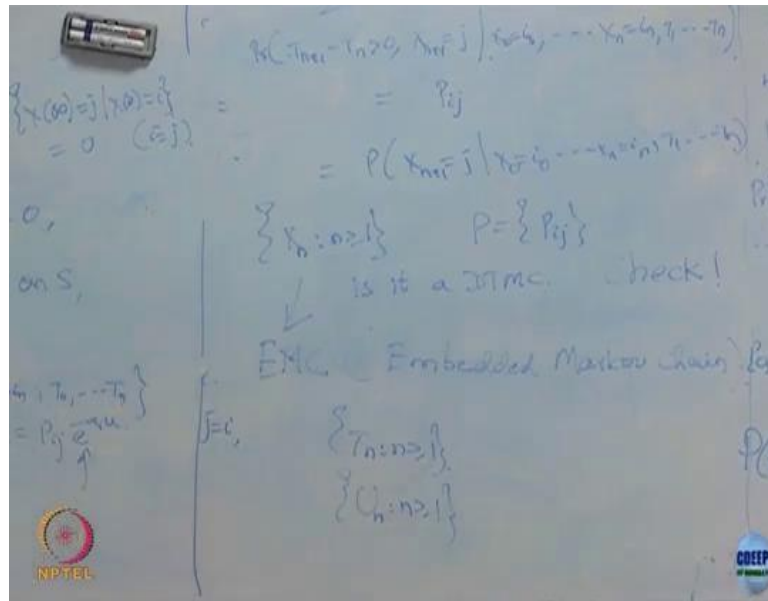 Pr(T_{n+1} - T_n > 0, X_{n+1} = j | X_0 = i_0, ---- X_n = i_n, T_1 --- T_n)
{X(∞) = j | X(0) = i} = = P_{ij}
= 0 (i = j)
= P(X_{n+1} = j | X_0 = i_0 ---- X_n = i_n, T_1 ---- T_n)
0,
{X_n : n ≥ 1} P = {P_{ij}}
on S,
is it a DTMC. Check!
EMC Embedded Markov Chain
i_n, T_1, --- T_n}
= P_{ij} e
j = i, {T_n : n ≥ 1}
{U_n : n ≥ 1}
P(
NPTEL
CDEEP